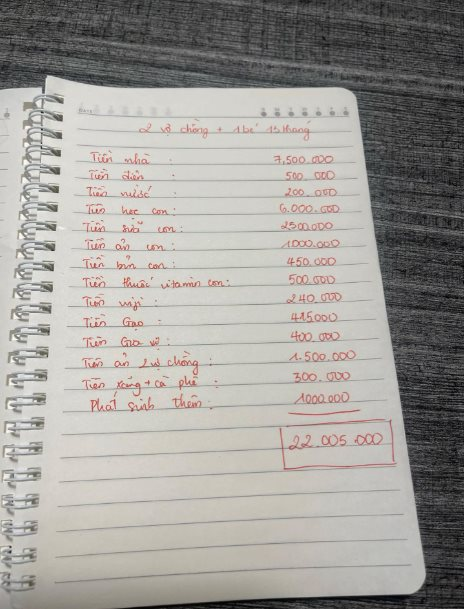 DATE
2 vợ chồng + 1 bé 15 tháng
Tiền nhà : 7,500.000
Tiền điện : 500.000
Tiền nước : 200.000
Tiền học con : 6.000.000
Tiền sữa con : 2500.000
Tiền ăn con : 1000.000
Tiền bỉm con : 450.000
Tiền thuốc vitamin con: 500.000
Tiền wifi : 240.000
Tiền Gạo : 415.000
Tiền Gia vị : 400.000
Tiền ăn 2 vợ chồng : 1.500.000
Tiền xăng + cà phê : 300.000
Phát sinh thêm : 1000.000
22.005.000